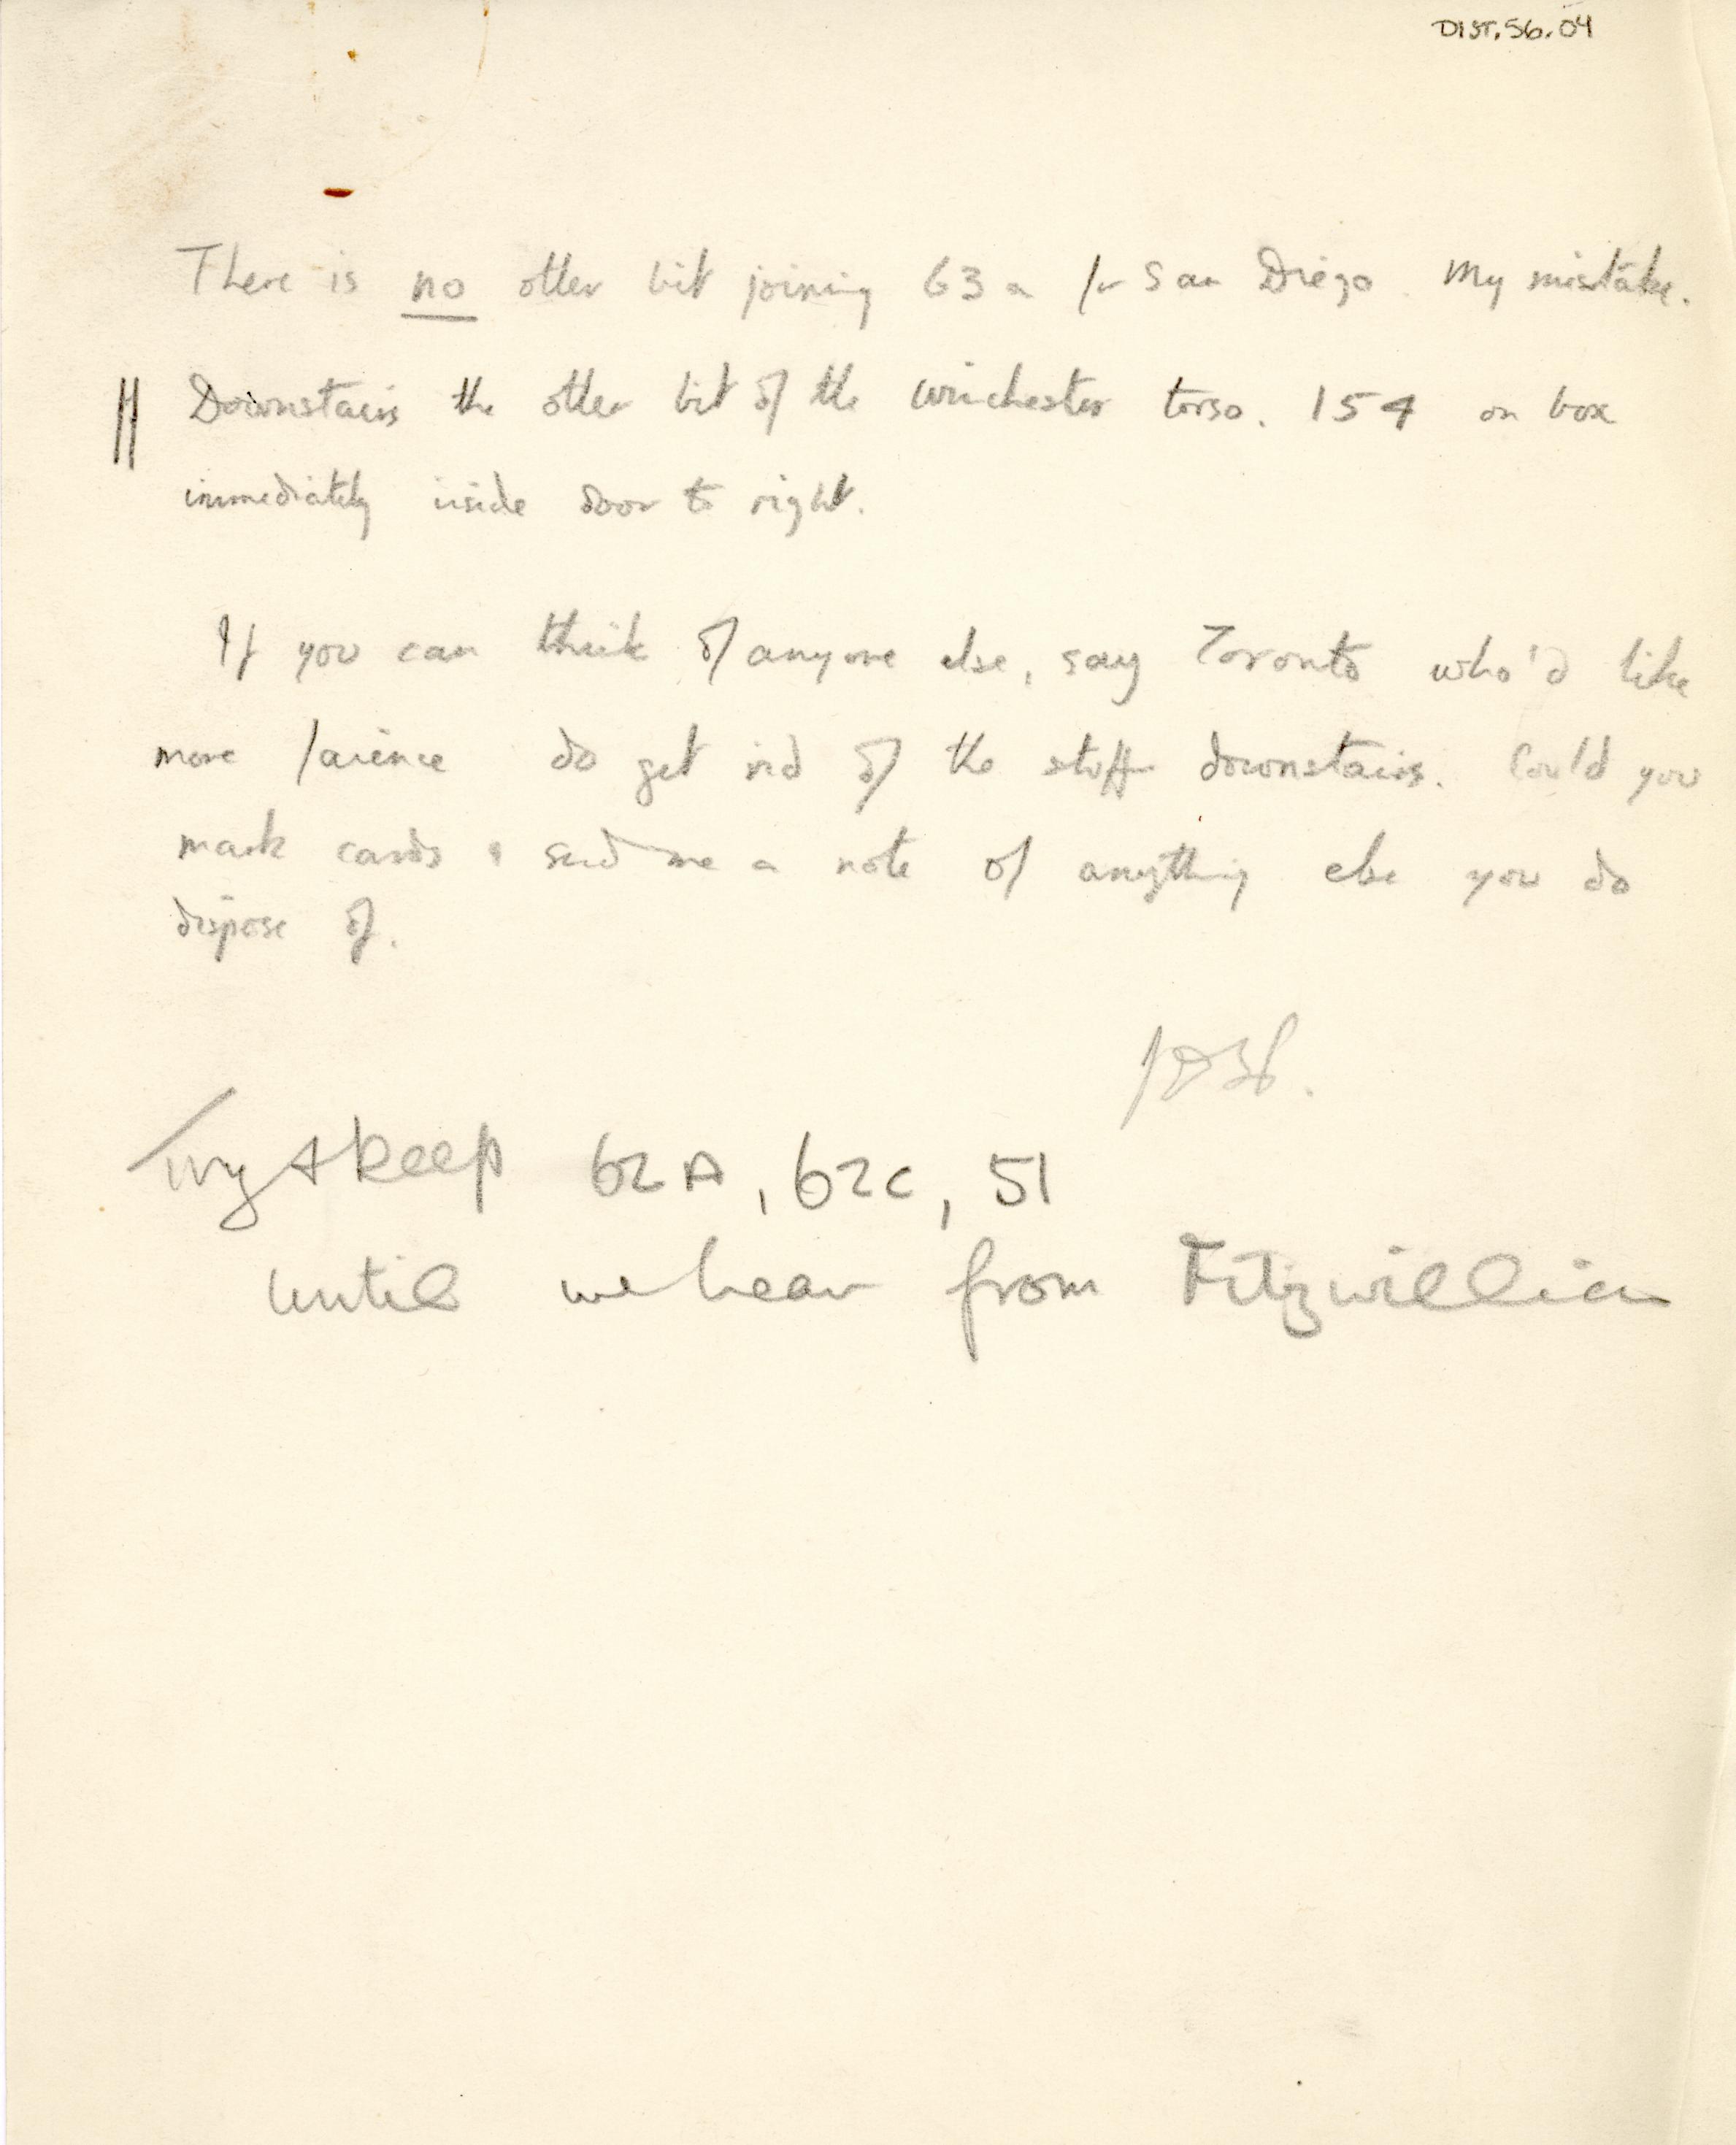 DIST.56.04
There is no other bit joining 63a for San Diego. My mistake.
Downstairs the other bit of the Winchester torso. 154 on box
immediately inside door to right.
If you can think of anyone else, say Toronto who'd like
more faience do get rid of the stuff downstairs. Could you
mark cards & send me a note of anything else you do
dispose of.
Try & keep 62A, 62C, 51
until we hear from Fitzwilliam